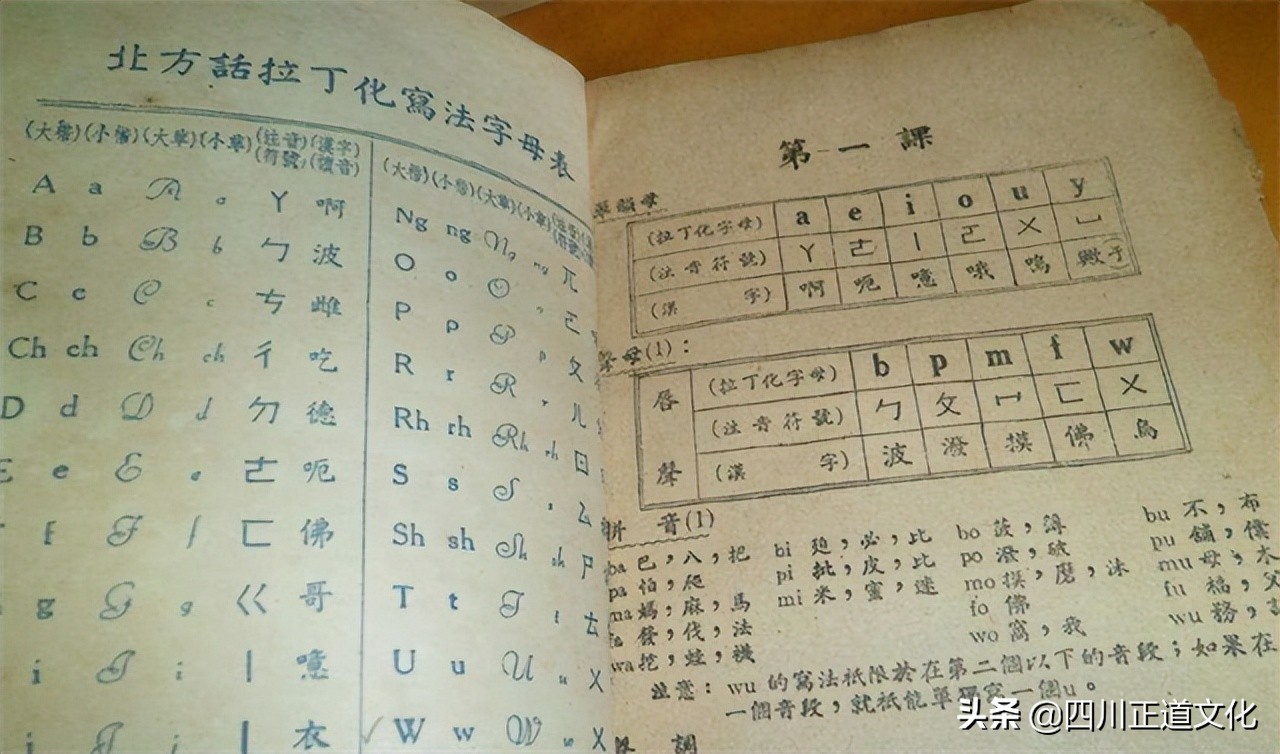 北方話拉丁化寫法字母表
(大楷) (小楷) (大草) (小草) (注音符號) (漢字讀音)
A a A a ㄚ 啊
B b B b ㄅ 波
C c C c ㄘ 雌
Ch ch Ch ch ㄔ 吃
D d D d ㄉ 德
E e E e ㄜ 呃
f F f ㄈ 佛
g G g ㄍ 哥
i I i ㄧ 噫
j J j ㄧ 衣
(大楷) (小楷) (大草) (小草)
Ng ng Ng ng ㄫ
O o O o ㄛ
P p P p ㄆ
R r R r ㄦ
Rh rh Rh rh ㄖ
S s S s ㄙ
Sh sh Sh sh ㄕ
T t T t ㄊ
U u U u ㄨ
W w W w ㄨ
第一課
單韻母
(拉丁化字母) a e i o u y
(注音符號) ㄚ ㄜ ㄧ ㄛ ㄨ ㄩ
(漢字) 啊 呃 噫 哦 嗚
字母(1):
唇聲
(拉丁化字母) b p m f w
(注音符號) ㄅ ㄆ ㄇ ㄈ ㄨ
(漢字) 波 潑 摸 佛 烏
拼音(1)
ba 巴,八,把 bi 逼,必,比 bo 菠,薄 bu 不,布
pa 怕,爬 pi 批,皮,比 po 潑,破 pu 鋪,僕
ma 媽,麻,馬 mi 米,蜜,迷 mo 摸,磨,沫 mu 母,木
fa 發,伐,法 fo 佛 fu 福,父
wa 挖,蛙,襪 wo 窩,我 wu 務,
注意:wu 的寫法祇限於在第二個以下的音段;如果在
一個音段,就祇能單獨寫一個u。
調
头条 @四川正道文化